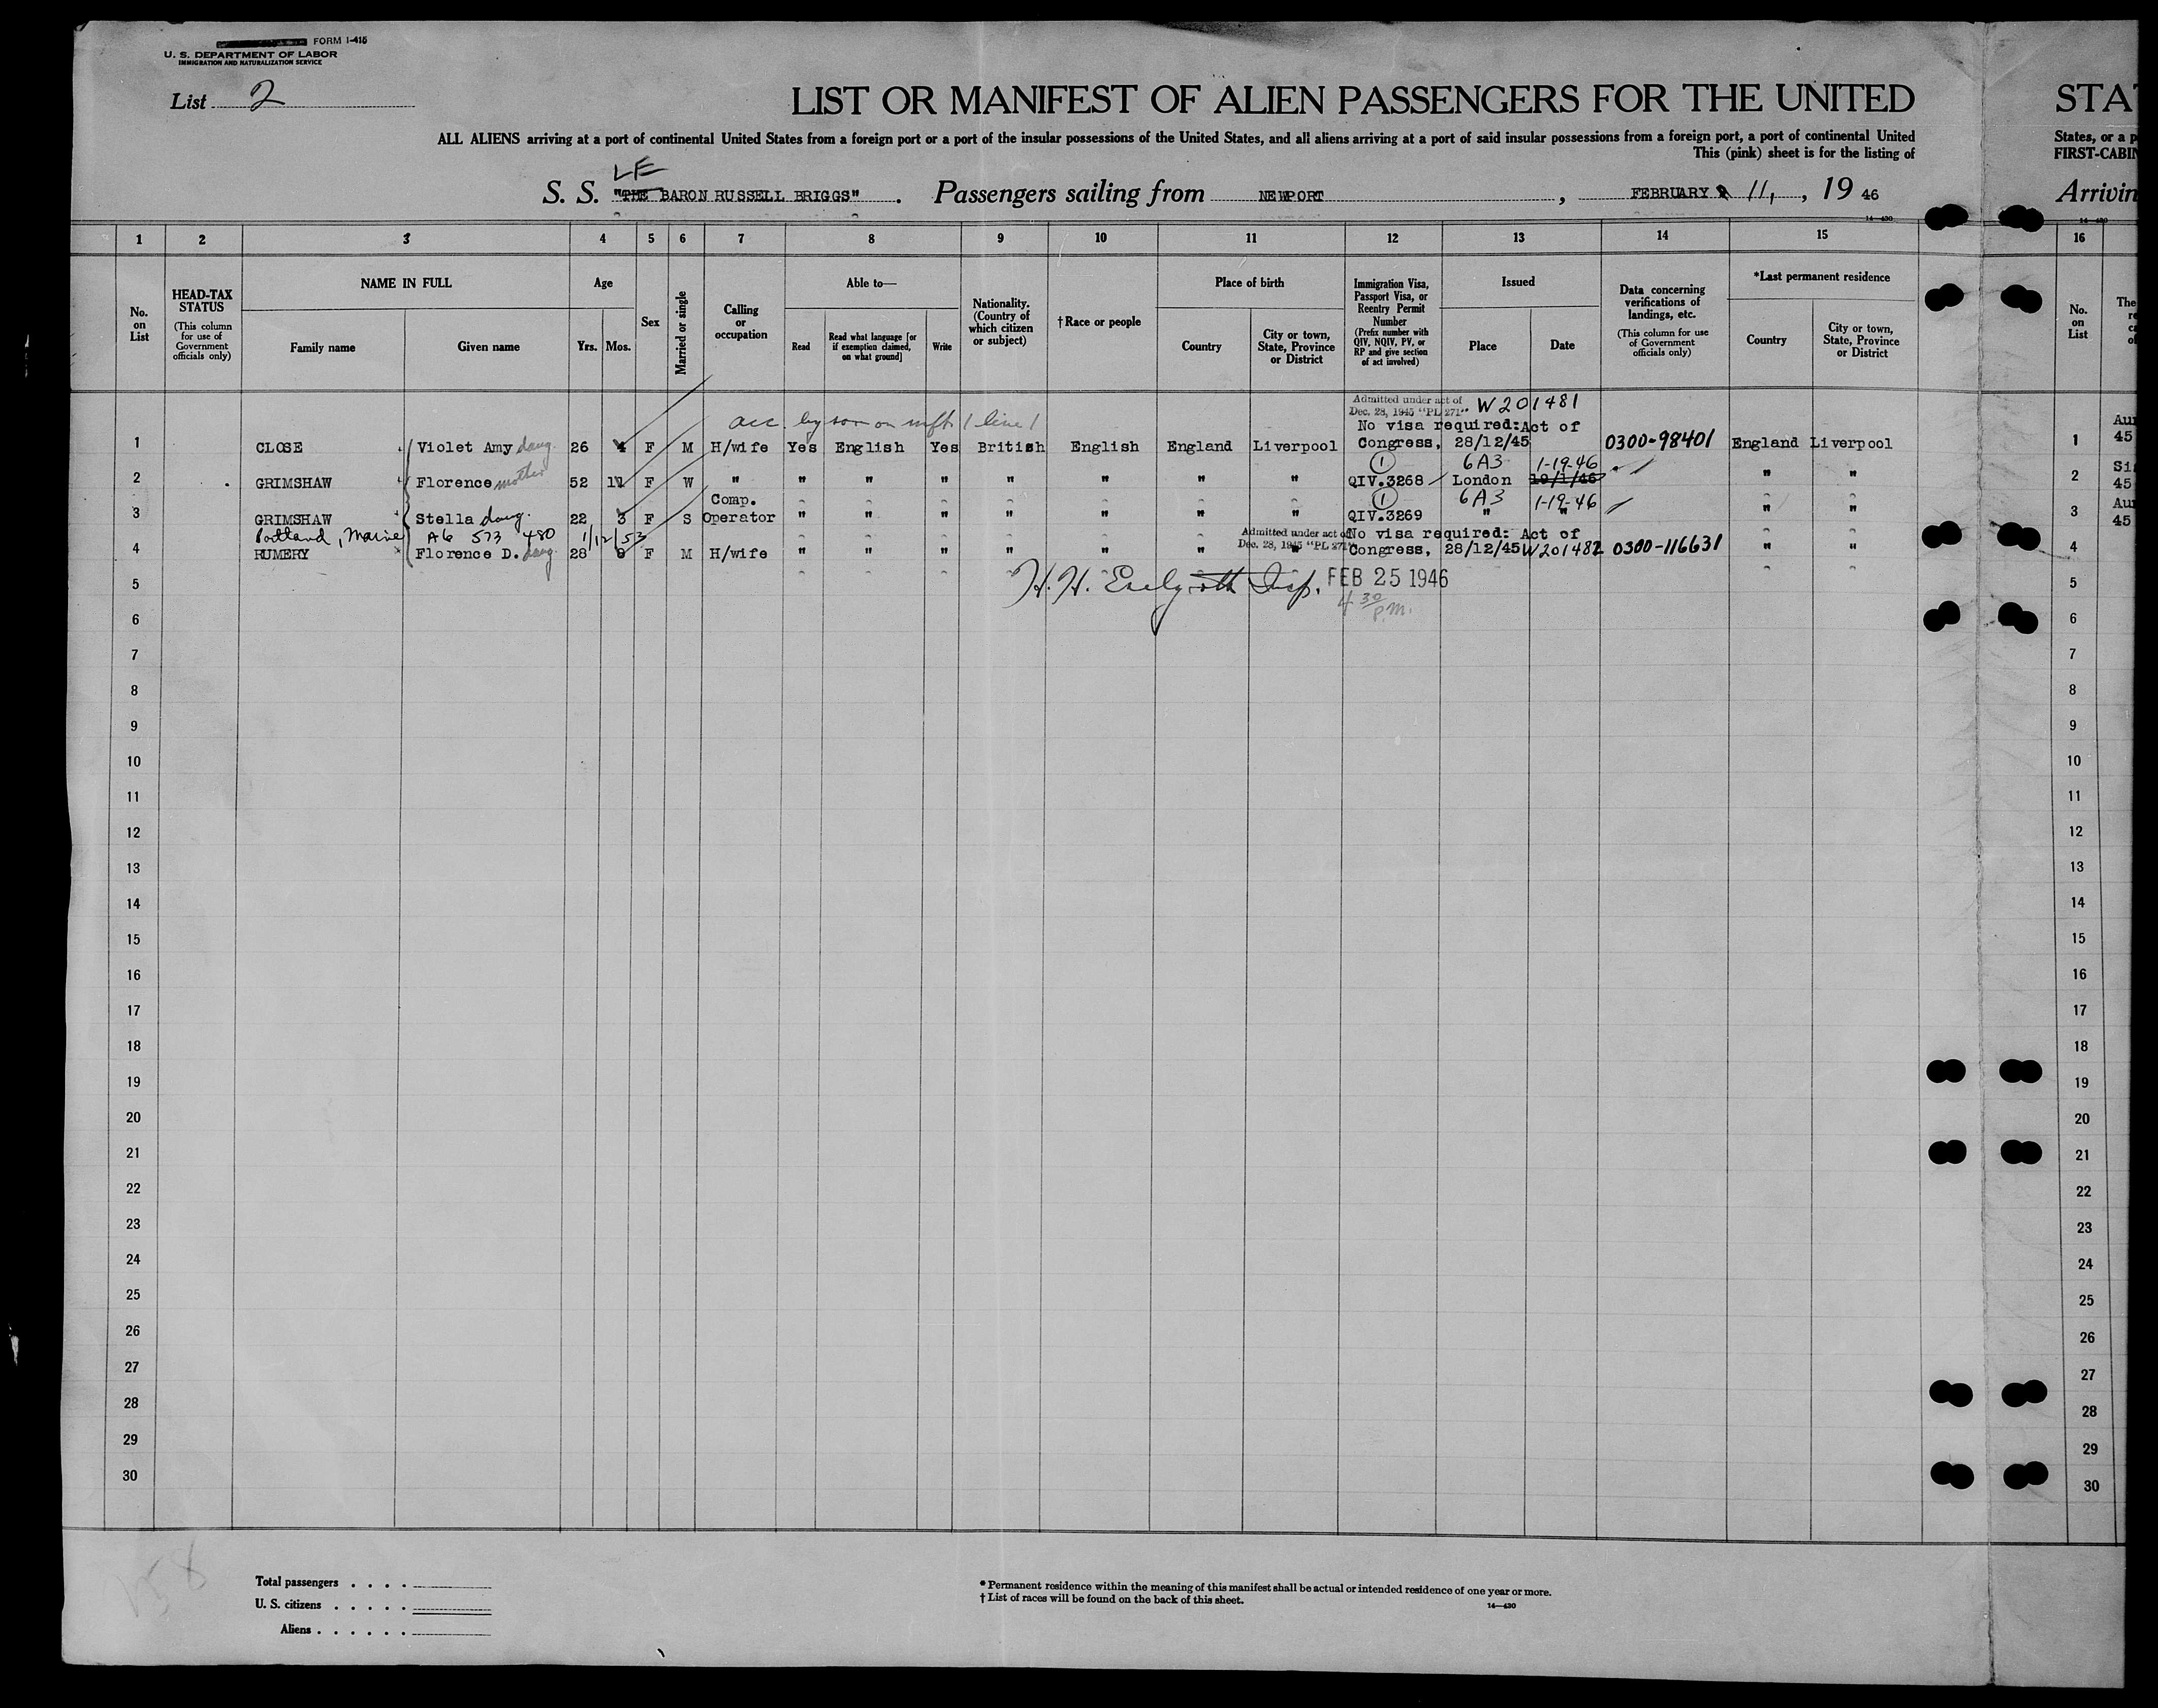 FORM I-415
U. S. DEPARTMENT OF LABOR
IMMIGRATION AND NATURALIZATION SERVICE
List 2
LIST OR MANIFEST OF ALIEN PASSENGERS FOR THE UNITED STA
ALL ALIENS arriving at a port of continental United States from a foreign port or a port of the insular possessions of the United States, and all aliens arriving at a port of said insular possessions from a foreign port, a port of continental United States, or a p
This (pink) sheet is for the listing of FIRST-CABIN
LE
S. S. "THE BARON RUSSELL BRIGGS" . Passengers sailing from NEWPORT , FEBRUARY 11, , 19 46 Arrivin
14—430 14—430
1 2 3 4 5 6 7 8 9 10 11 12 13 14 15 16
No. on List
HEAD-TAX STATUS (This column for use of Government officials only)
NAME IN FULL
Family name Given name
Age
Yrs. Mos.
Sex
Married or single
Calling or occupation
Able to—
Read Read what language [or if exemption claimed, on what ground] Write
Nationality. (Country of which citizen or subject)
†Race or people
Place of birth
Country City or town, State, Province or District
Immigration Visa, Passport Visa, or Reentry Permit Number (Prefix number with QIV, NQIV, PV, or RP and give section of act involved)
Issued
Place Date
Data concerning verifications of landings, etc. (This column for use of Government officials only)
*Last permanent residence
Country City or town, State, Province or District
No. on List
The
Admitted under act of
Dec. 28, 1945 "PL 271" W201481
acc. by son on mft 1 line 1
No visa required:Act of
1 CLOSE Violet Amy daug. 26 4 F M H/wife Yes English Yes British English England Liverpool Congress, 28/12/45 0300-98401 England Liverpool 1 45
1 6A3 1-19-46
2 GRIMSHAW Florence mother 52 11 F W " " " " " " " " QIV.3268 London 19/1/46 " " 2 45
Comp. 1 6A3 1-19-46
3 GRIMSHAW Stella daug. 22 3 F S Operator " " " " " " " QIV.3269 " " " " 3 45
Portland, Maine A6 573 480 1/12/53 Admitted under act of No visa required: Act of
Dec. 28, 1945 "PL 271"
4 RUMERY Florence D. daug. 28 F M H/wife " " " " " " " Congress, 28/12/45 W201482 0300-116631 " " 4
5 H. H. Insp. FEB 25 1946 5
4 30 P.M.
6 6
7 7
8 8
9 9
10 10
11 11
12 12
13 13
14 14
15 15
16 16
17 17
18 18
19 19
20 20
21 21
22 22
23 23
24 24
25 25
26 26
27 27
28 28
29 29
30 30
158
Total passengers . . . .
U. S. citizens . . . . .
Aliens . . . . . .
* Permanent residence within the meaning of this manifest shall be actual or intended residence of one year or more.
† List of races will be found on the back of this sheet.
14—430